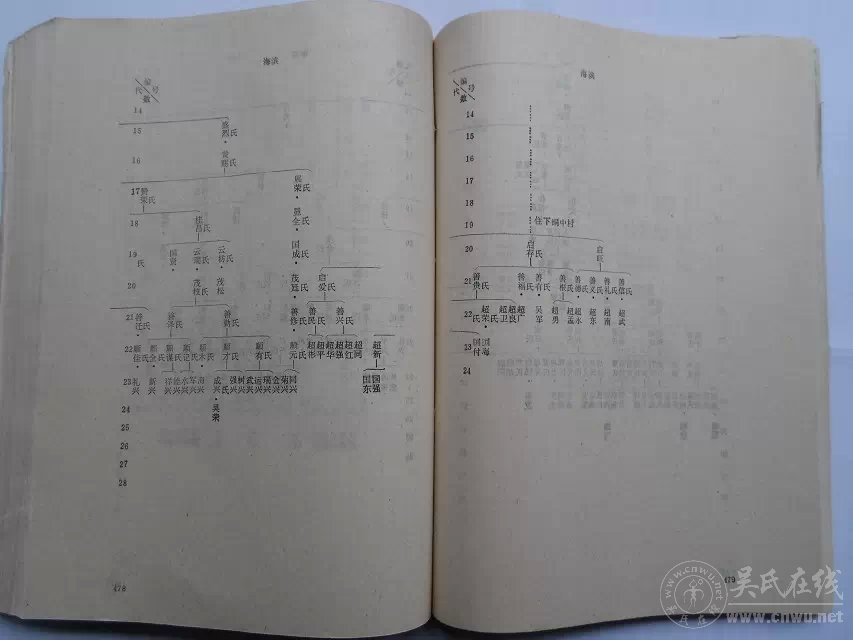 海滨
编号
代数
14
15 烈氏
16
17 荣氏 荣氏
18 昌氏 金氏
19 氏 国贤 云瑞氏 云杨氏 国成氏
20 茂松 茂廷氏 启爱氏
21 善江氏 善泽氏 善勤氏 善修氏 善民氏 善兴氏
22 顺佳氏 顺全氏 顺谋氏 顺论氏 顺木氏 顺才氏 顺有氏 顺元氏 超彬 超平 超华 超强 超红 超同 超新
23 礼兴 新兴 祥兴 水兴 军兴 海兴 成兴氏 强兴 树兴 武兴 运兴 瑞兴 金兴 菊兴 同兴 国东 国强
24 吴荣
25
26
27
28
478
海滨
编号
代数
14
15
16
17
18
19 住下垌中村
20 启存氏 启旺氏
21 善贵氏 善福氏 善有氏 善根氏 善德氏 善义氏 善礼氏 善信氏
22 氏 超荣氏 超卫 超良 超广 吴军 超勇 超孟 超水 超东 超南 超武
23 国付 国海
24
479
吴氏在线
www.cnwu.net